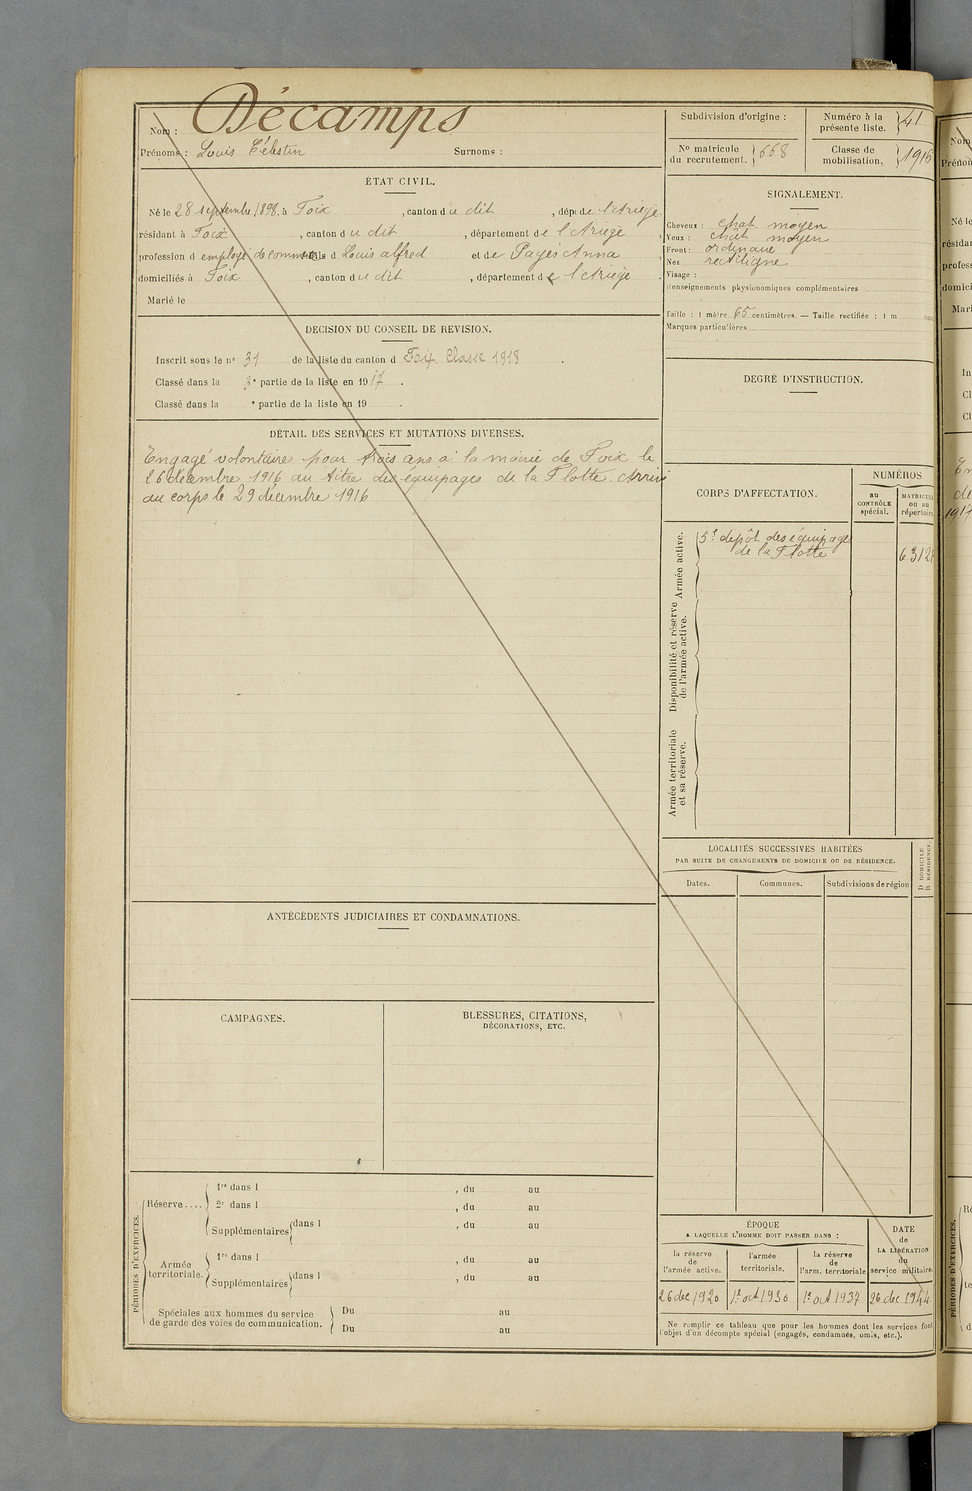 Nom : Décamps
Prénoms : Louis Célestin Surnoms :
ÉTAT CIVIL.
Né le 28 septembre 1898, à Foix , canton du dit , dépt de l'Ariège
résidant à Foix , canton du dit , département de l'Ariège ,
profession d employé de commerce fils d Louis alfred et de Pagès Anna ,
domiciliés à Foix , canton du dit , département de l'Ariège .
Marié le
DÉCISION DU CONSEIL DE REVISION.
Inscrit sous le n° 31 de la liste du canton d Foix Classe 1918 .
Classé dans la 3e partie de la liste en 1917 .
Classé dans la e partie de la liste en 19 .
DÉTAIL DES SERVICES ET MUTATIONS DIVERSES.
Engagé volontaire pour trois ans à la mairie de Foix le
26 décembre 1916 au titre des équipages de la Flotte. Arrivé
au corps le 29 décembre 1916
ANTÉCÉDENTS JUDICIAIRES ET CONDAMNATIONS.
CAMPAGNES.
BLESSURES, CITATIONS,
DÉCORATIONS, ETC.
PÉRIODES D'EXERCICES.
Réserve....
1re dans l , du au
2e dans l , du au
Supplémentaires dans l , du au
Armée
territoriale.
1re dans l , du au
Supplémentaires dans l , du au
Spéciales aux hommes du service
de garde des voies de communication.
Du au
Du au
Subdivision d'origine :
Numéro à la
présente liste. 41
N° matricule
du recrutement. 668
Classe de
mobilisation. 1916
SIGNALEMENT.
Cheveux : chat moyen
Yeux : chat moyen
Front : ordinaire
Nez rectiligne
Visage :
Renseignements physionomiques complémentaires
Taille : 1 mètre 65 centimètres. — Taille rectifiée : 1 m cen
Marques particulières
DEGRÉ D'INSTRUCTION.
CORPS D'AFFECTATION.
NUMÉROS
au
CONTRÔLE
spécial.
MATRICULE
ou au
répertoire
Armée active.
5e dépôt des équipages
de la Flotte
6312
Disponibilité et réserve
de l'armée active.
Armée territoriale
et sa réserve.
LOCALITÉS SUCCESSIVES HABITÉES
PAR SUITE DE CHANGEMENTS DE DOMICILE OU DE RÉSIDENCE.
Dates.
Communes.
Subdivisions de région
D DOMICILE
R RÉSIDENCE.
ÉPOQUE
A LAQUELLE L'HOMME DOIT PASSER DANS :
DATE
de
LA LIBÉRATION
du
service militaire.
la réserve
de
l'armée active.
l'armée
territoriale.
la réserve
de
l'arm. territoriale
26 dec 1920
1er oct 1930
1er oct 1937
26 dec 1944
Ne remplir ce tableau que pour les hommes dont les services font
l'objet d'un décompte spécial (engagés, condamnés, omis, etc.).